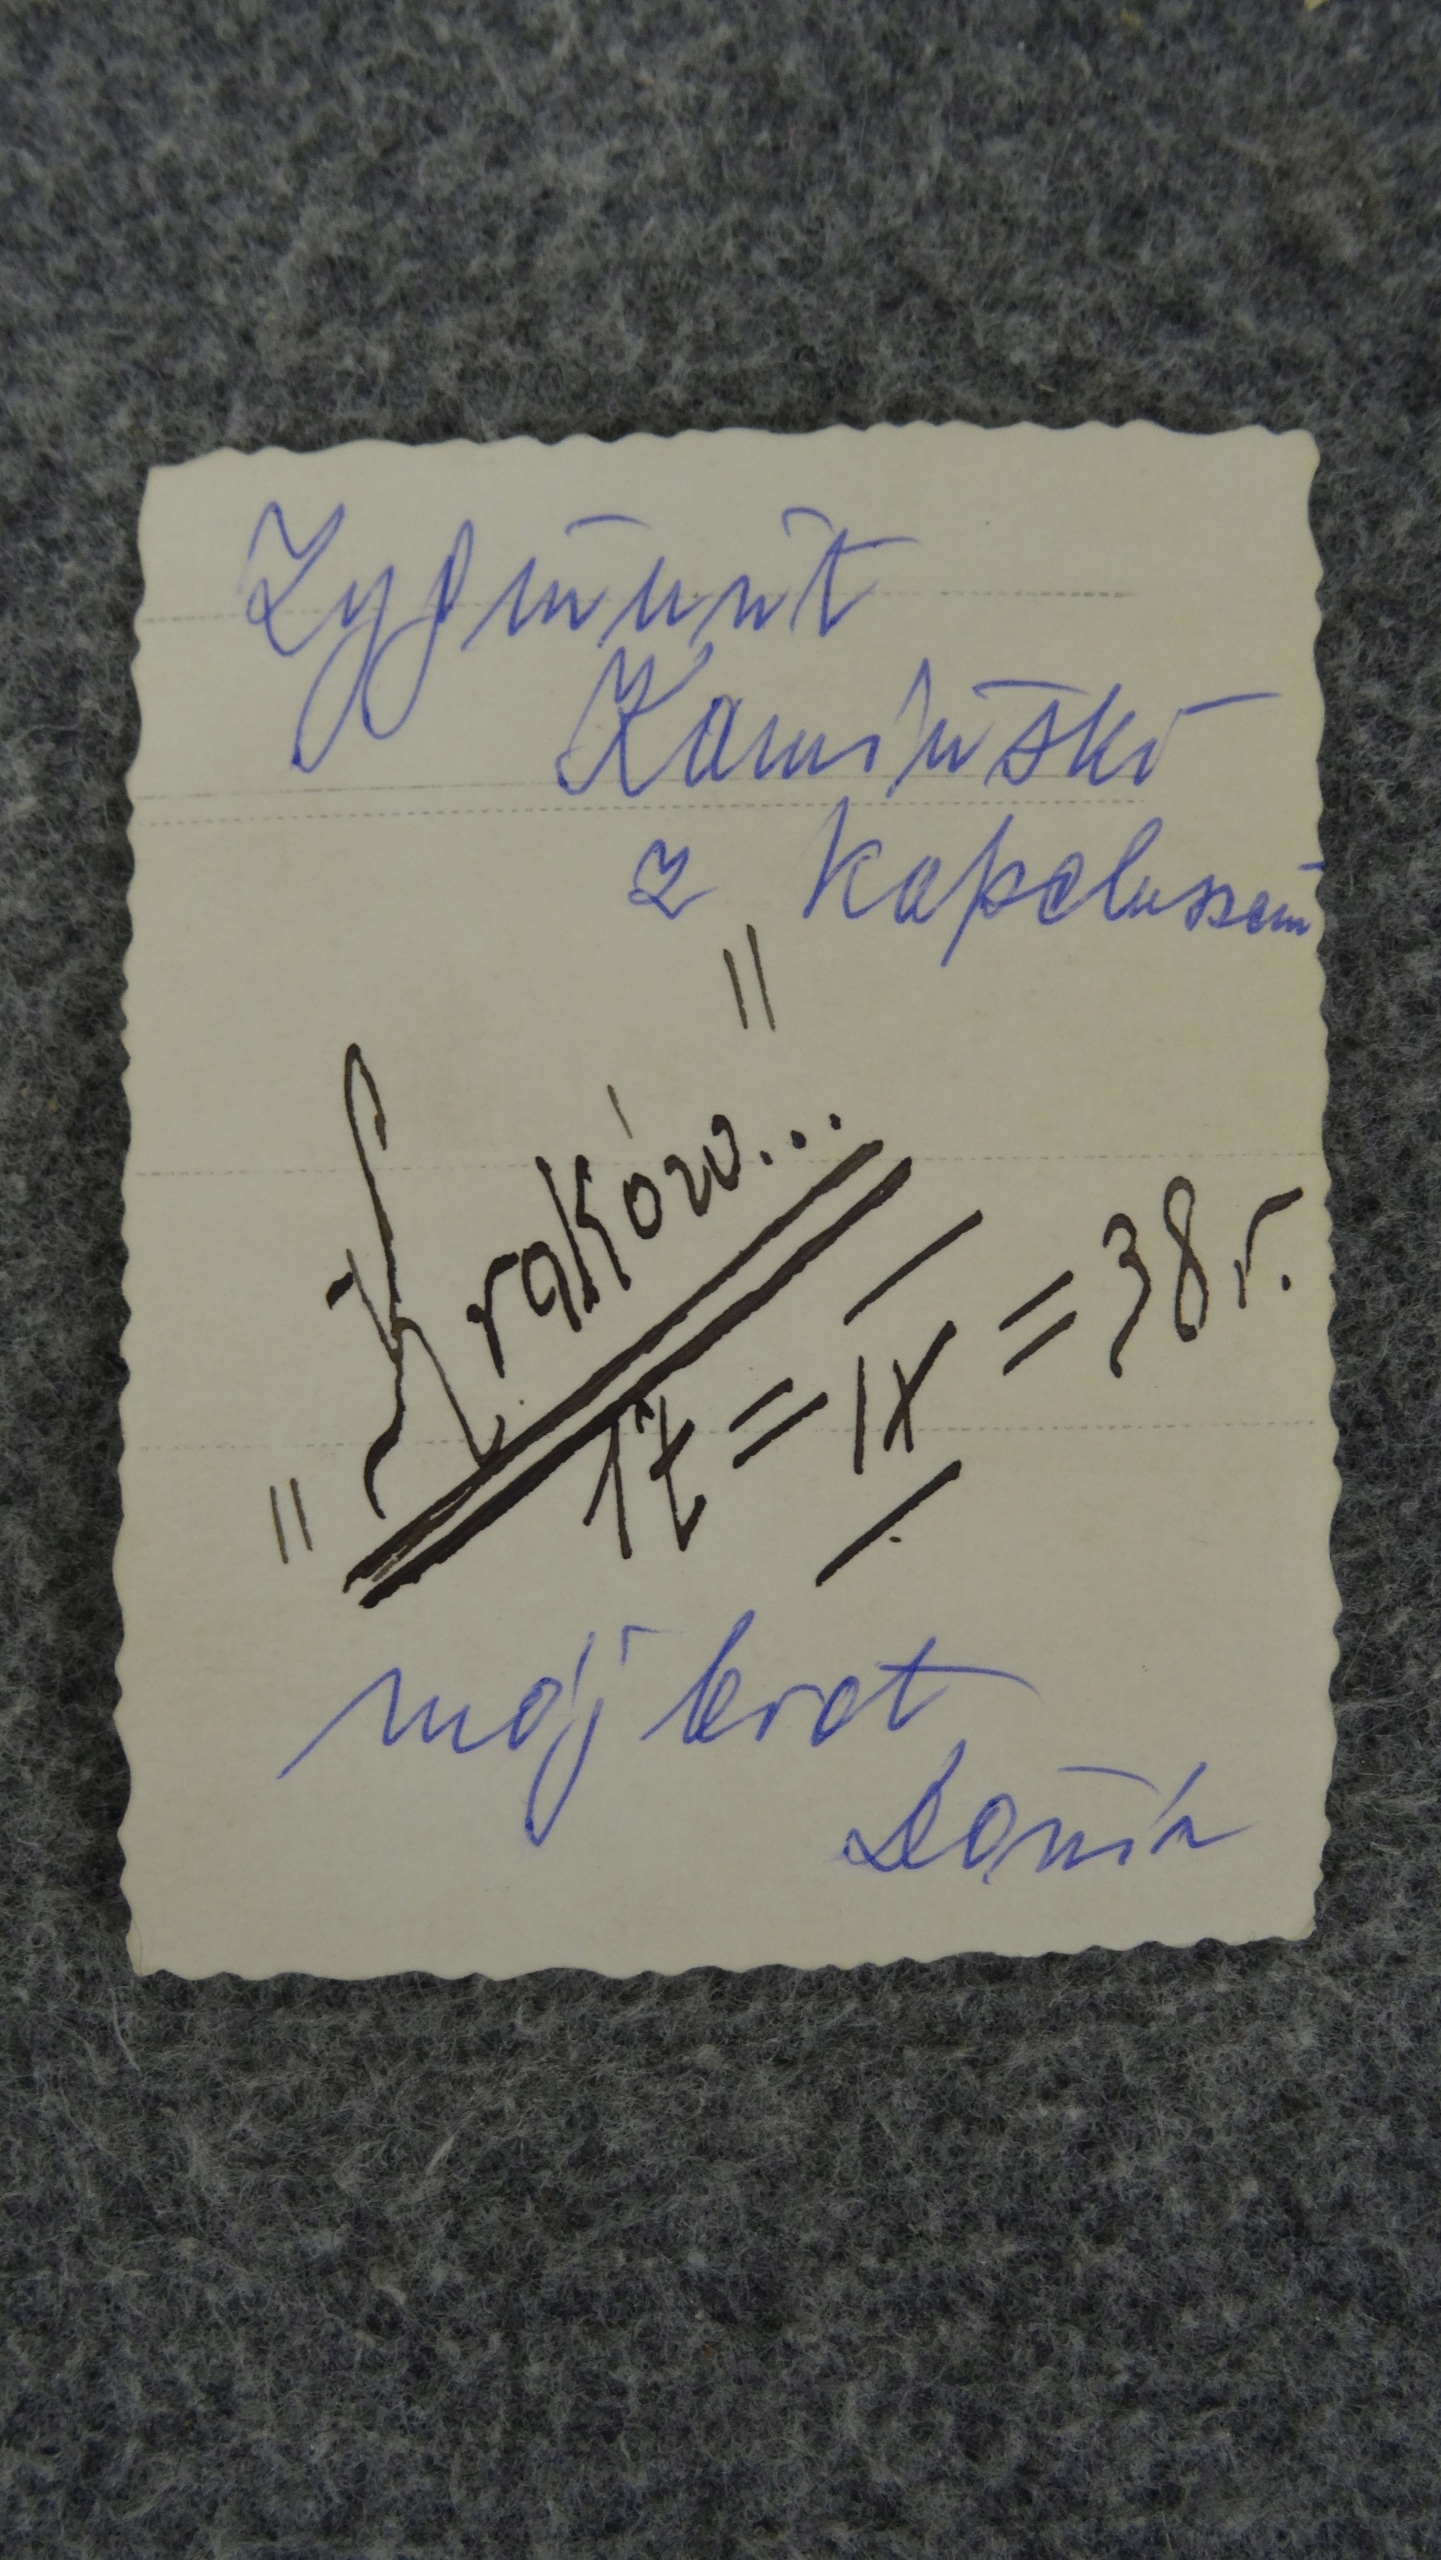 Zygmunt
Kamiński
z kapeluszem
"Kraków..."
17=IX=38r.
mój brat